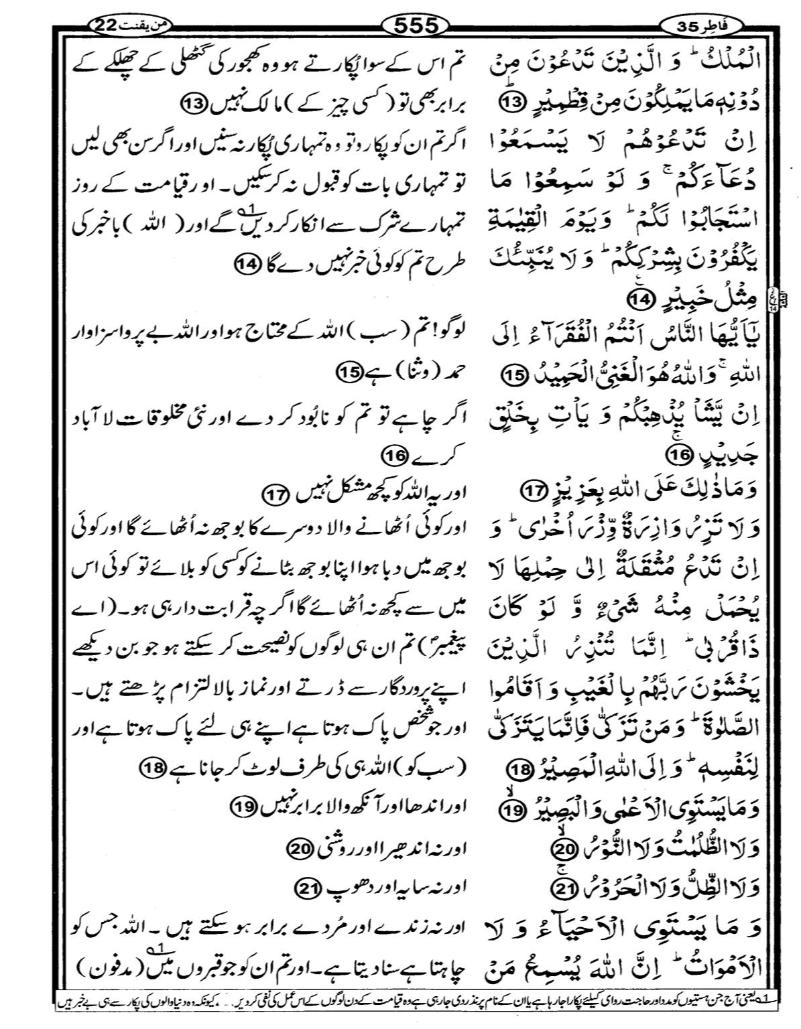 فَاطِر 35
555
من یقنت 22
الْمُلْكُ ؕ وَ الَّذِيْنَ تَدْعُوْنَ مِنْ
دُوْنِهٖ مَا يَمْلِكُوْنَ مِنْ قِطْمِيْرٍ ؕ 13
اِنْ تَدْعُوْهُمْ لَا يَسْمَعُوْا
دُعَآءَكُمْ ۚ وَ لَوْ سَمِعُوْا مَا
اسْتَجَابُوْا لَكُمْ ؕ وَيَوْمَ الْقِيٰمَةِ
يَكْفُرُوْنَ بِشِرْكِكُمْ ؕ وَ لَا يُنَبِّئُكَ
مِثْلُ خَبِيْرٍ 14
يٰۤاَيُّهَا النَّاسُ اَنْتُمُ الْفُقَرَآءُ اِلَى
اللهِ ۚ وَاللهُ هُوَ الْغَنِىُّ الْحَمِيْدُ 15
اِنْ يَّشَاْ يُذْهِبْكُمْ وَ يَاْتِ بِخَلْقٍ
جَدِيْدٍ ۚ 16
وَمَا ذٰلِكَ عَلَى اللهِ بِعَزِيْزٍ 17
وَ لَا تَزِرُ وَازِرَةٌ وِّزْرَ اُخْرٰى ؕ وَ
اِنْ تَدْعُ مُثْقَلَةٌ اِلٰى حِمْلِهَا لَا
يُحْمَلْ مِنْهُ شَىْءٌ وَّ لَوْ كَانَ
ذَا قُرْبٰى ؕ اِنَّمَا تُنْذِرُ الَّذِيْنَ
يَخْشَوْنَ رَبَّهُمْ بِالْغَيْبِ وَ اَقَامُوا
الصَّلٰوةَ ؕ وَ مَنْ تَزَكّٰى فَاِنَّمَا يَتَزَكّٰى
لِنَفْسِهٖ ؕ وَ اِلَى اللهِ الْمَصِيْرُ 18
وَ مَا يَسْتَوِى الْاَعْمٰى وَ الْبَصِيْرُ ۙ 19
وَ لَا الظُّلُمٰتُ وَ لَا النُّوْرُ ۙ 20
وَ لَا الظِّلُّ وَ لَا الْحَرُوْرُ ۚ 21
وَ مَا يَسْتَوِى الْاَحْيَآءُ وَ لَا
الْاَمْوَاتُ ؕ اِنَّ اللهَ يُسْمِعُ مَنْ
تم اس کے سوا پکارتے ہو وہ کھجور کی گٹھلی کے چھلکے کے
برابر بھی تو (کسی چیز کے) مالک نہیں 13
اگر تم ان کو پکارو تو وہ تمہاری پکار نہ سنیں اور اگر سن بھی لیں
تو تمہاری بات کو قبول نہ کر سکیں۔ اور قیامت کے روز
تمہارے شرک سے انکار کر دیں 1 گے اور ( اللہ ) باخبر کی
طرح تم کو کوئی خبر نہیں دے گا 14
لوگو! تم (سب) اللہ کے محتاج ہو اور اللہ بے پروا سزاوار
حمد (وثنا) ہے 15
اگر چاہے تو تم کو نابود کر دے اور نئی مخلوقات لا آباد
کرے 16
اور یہ اللہ کو کچھ مشکل نہیں 17
اور کوئی اُٹھانے والا دوسرے کا بوجھ نہ اُٹھائے گا اور کوئی
بوجھ میں دبا ہوا اپنا بوجھ بٹانے کو کسی کو بلائے تو کوئی اس
میں سے کچھ نہ اُٹھائے گا اگر چہ قرابت دار ہی ہو۔ (اے
پیغمبرؐ) تم ان ہی لوگوں کو نصیحت کر سکتے ہو جو بن دیکھے
اپنے پروردگار سے ڈرتے اور نماز بالالتزام پڑھتے ہیں۔
اور جو شخص پاک ہوتا ہے اپنے ہی لئے پاک ہوتا ہے اور
(سب کو) اللہ ہی کی طرف لوٹ کر جانا ہے 18
اور اندھا اور آنکھ والا برابر نہیں 19
اور نہ اندھیرا اور روشنی 20
اور نہ سایہ اور دھوپ 21
اور نہ زندے اور مُردے برابر ہو سکتے ہیں ۔ اللہ جس کو
چاہتا ہے سنا دیتا ہے۔ اور تم ان کو جو قبروں میں 1 (مدفون)
1 یعنی آج جن ہستیوں کو مدد اور حاجت روائی کیلئے پکارا جا رہا ہے یا ان کے نام پر نذر دی جا رہی ہے وہ قیامت کے دن لوگوں کے اس عمل کی نفی کر دیں ۔ کیونکہ وہ دنیا والوں کی پکار سے ہی بے خبر ہیں